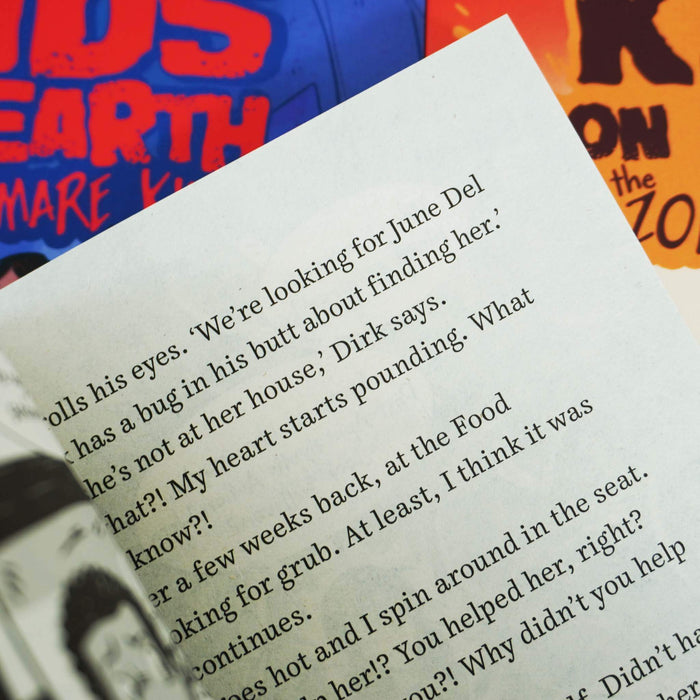 IDS
EARTH
MARE K
K
ON
the
ZO
olls his eyes. ‘We’re looking for June Del
has a bug in his butt about finding her.’
he’s not at her house,’ Dirk says.
hat?! My heart starts pounding. What
know?!
er a few weeks back, at the Food
oking for grub. At least, I think it was
continues.
oes hot and I spin around in the seat.
her!? You helped her, right?
ou?! Why didn’t you help
Didn’t ha